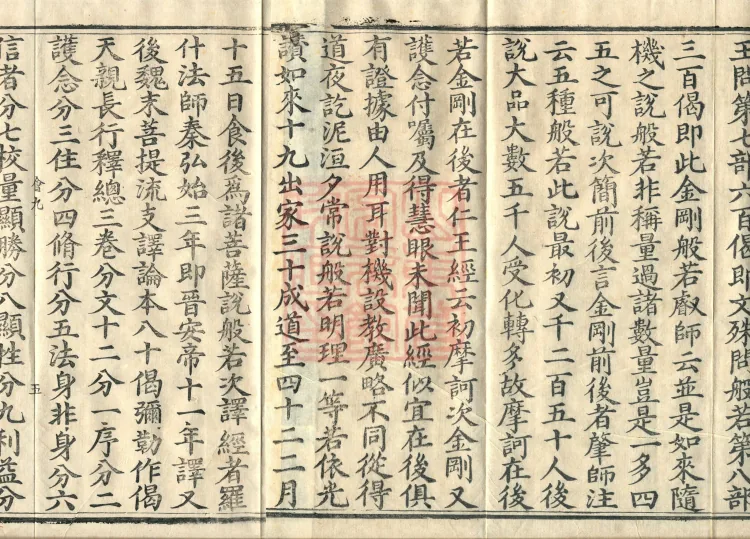 王問第七部六百偈即文殊問般若第八部
三百偈即此金剛般若叡師云並是如來隨
機之說般若非稱量過諸數量豈是一多四
五之可說次簡前後言金剛前後者肇師注
云五種般若此說最初又千二百五十人後
說大品大數五千人受化轉多故摩訶在後
若金剛在後者仁王經云初摩訶次金剛又
護念付囑及得慧眼未聞此經似宜在後俱
有證據由人用耳對機設教廣略不同從得
道夜訖泥洹夕常說般若明理一等若依光
讚如來十九出家三十成道至四十二二月
十五日食後為諸菩薩說般若次譯經者羅
什法師秦弘始三年即晉安帝十一年譯又
後魏末菩提流支譯論本八十偈彌勒作偈
天親長行釋總三卷分文十二分一序分二
護念分三住分四脩行分五法身非身分六
會九
五
信者分七校量顯勝分八顯性分九利益分